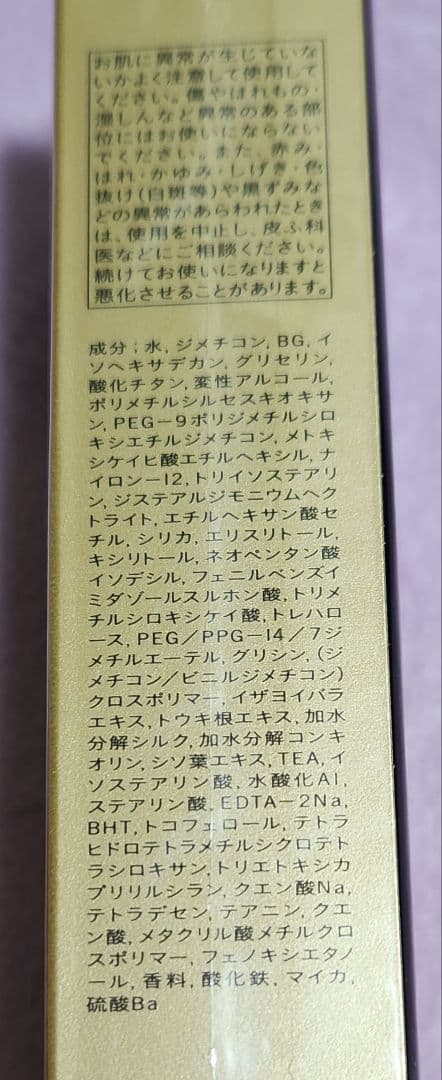 お肌に異常が生じていな
いかよく注意して使用して
ください。傷やはれもの・
湿しんなど異常のある部
位にはお使いにならない
でください。また、赤み・
はれ・かゆみ・しげき・色
抜け(白斑等)や黒ずみな
どの異常があらわれたとき
は、使用を中止し、皮ふ科
医などにご相談ください。
続けてお使いになりますと
悪化させることがあります。
成分;水, ジメチコン, BG, イ
ソヘキサデカン, グリセリン,
酸化チタン, 変性アルコール,
ポリメチルシルセスキオキサ
ン, PEG-9ポリジメチルシロ
キシエチルジメチコン, メトキ
シケイヒ酸エチルヘキシル, ナ
イロン-12, トリイソステアリ
ン, ジステアルジモニウムヘク
トライト, エチルヘキサン酸セ
チル, シリカ, エリスリトール,
キシリトール, ネオペンタン酸
イソデシル, フェニルベンズイ
ミダゾールスルホン酸, トリメ
チルシロキシケイ酸, トレハロ
ース, PEG/PPG-14/7ジ
メチルエーテル, グリシン, (ジ
メチコン/ビニルジメチコン)
クロスポリマー, イザヨイバラ
エキス, トウキ根エキス, 加水
分解シルク, 加水分解コンキ
オリン, シソ葉エキス, TEA, イ
ソステアリン酸, 水酸化Al,
ステアリン酸, EDTA-2Na,
BHT, トコフェロール, テトラ
ヒドロテトラメチルシクロテト
ラシロキサン, トリエトキシカ
プリリルシラン, クエン酸Na,
テトラデセン, テアニン, クエ
ン酸, メタクリル酸メチルクロ
スポリマー, フェノキシエタノ
ール, 香料, 酸化鉄, マイカ,
硫酸Ba